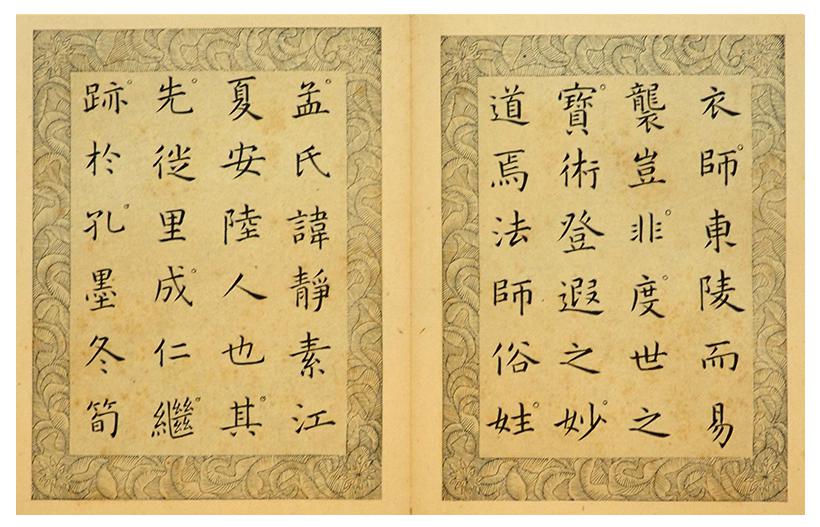 衣師東陵而易
襲豈非度世之
寶術登遐之妙
道焉法師俗姓
孟氏諱靜素江
夏安陸人也其
先徙里成仁繼
跡於孔墨冬筍